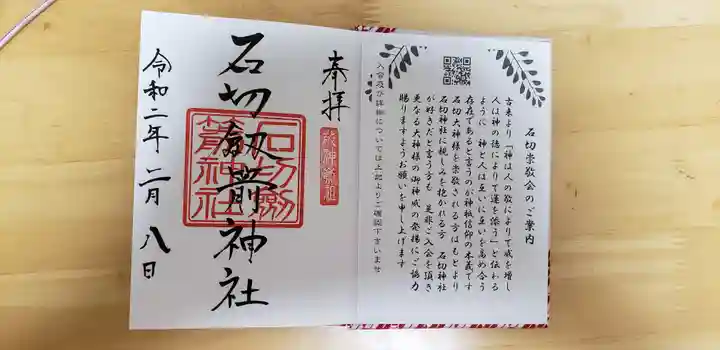 石切崇敬会のご案内
古来より「神は人の敬によりて威を増し
人は神の徳によりて運を添う」と伝わる
ように 神と人は互いに互いを高め合う
存在であると言うのが神祇信仰の本義です
石切大神様を崇敬される方はもとより
石切神社に親しみを抱かれる方 石切神社
が好きだと言う方も 是非ご入会を頂き
更なる大神様の御神威の発揚にご協力
賜りますようお願いを申し上げます
入会及び詳細については上記よりご確認下さいませ
奉拝
石切劔箭神社
石切劔
箭神社
令和二年二月八日